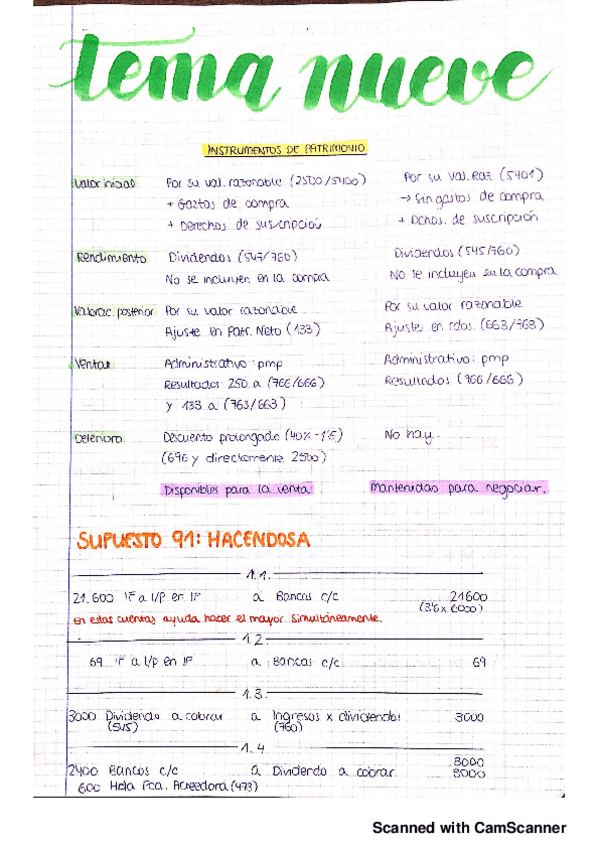 tema nueve
INSTRUMENTOS DE PATRIMONIO
Valor inicial Por su val. razonable (2500/5400) Por su Val. Raz (5401)
+ Gastos de compra → Sin gastos de compra
+ Derechos de suscripción + Dchos. de suscripción
Rendimiento Dividendos (547/760) Dividendos (545/760)
No se incluyen en la compra No se incluyen en la compra
Valorac. posterior Por su valor razonable Por su valor razonable
Ajuste en Patr. Neto (133) Ajuste en rdos. (663/763)
Ventas Administrativo: pmp Administrativo: pmp
Resultados 250 a (766/666) Resultados (766/666)
y 133 a (763/663)
Deterioro Descuento prolongado (40% - 1'5) No hay.
(696 y directamente 2500)
Disponibles para la venta Mantenidas para negociar.
SUPUESTO 91: HACENDOSA
1.1.
21.600 IF a l/p en IP a Bancos c/c 21600
(3'6 x 6000)
En estas cuentas ayuda hacer el mayor simultáneamente.
1.2.
69 IF a l/p en IP a Bancos c/c 69
1.3.
3000 Dividendo a cobrar a Ingresos x dividendos 3000
(545) (760)
1.4
3000
2400 Bancos c/c a Dividendo a cobrar 3000
600 Hda Pca. Acreedora (473)
Scanned with CamScanner